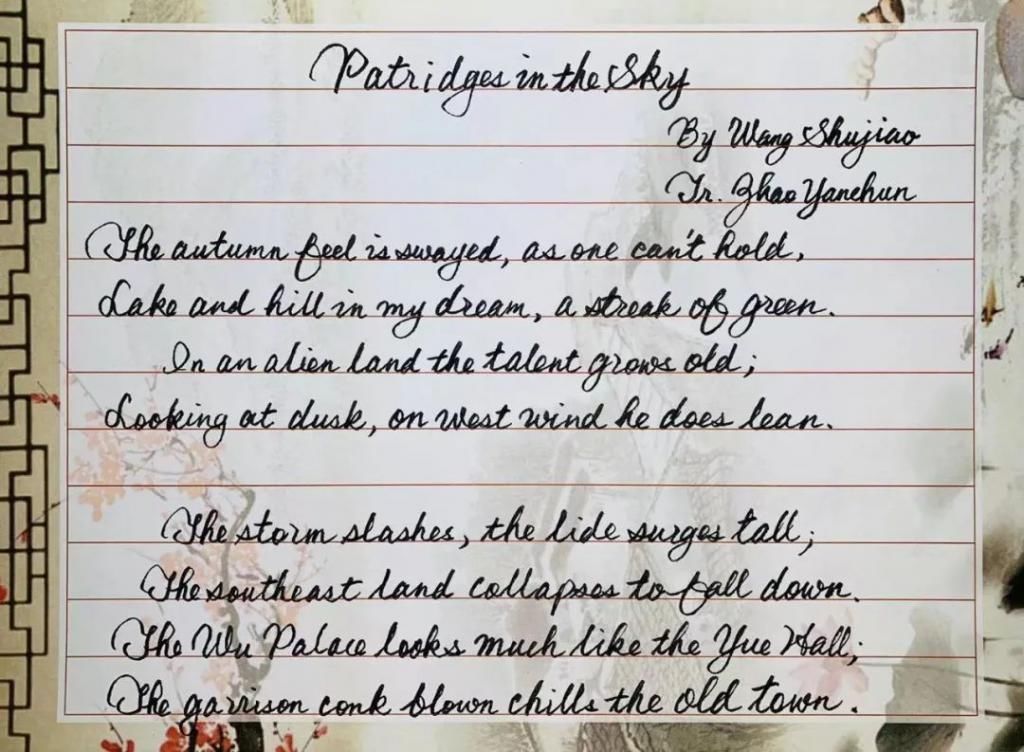 Patridges in the Sky
By Wang Shujiao
Tr. Zhao Yanchun
The autumn feel is swayed, as one can't hold,
Lake and hill in my dream, a streak of green.
In an alien land the talent grows old;
Looking at dusk, on west wind he does lean.
The storm slashes, the lide surges tall;
The southeast land collapses to fall down.
The Wu Palace looks much like the Yue Hall;
The garrison conk blown chills the old town.